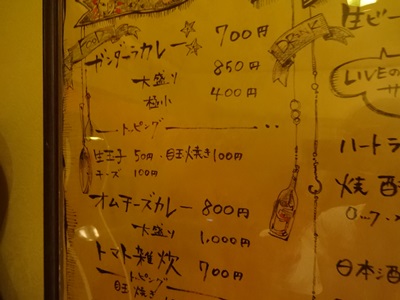 FOOD
ガンダーラカレー 700円
大盛り 850円
極小 400円
トッピング
生玉子 50円・目玉焼き100円
チーズ 100円
オムチーズカレー 800円
大盛り 1,000円
トマト雑炊 700円
トッピング
目玉焼き
DRINK
生ビー
LIVEの
サ
ハートラ
焼酎
ロック・
日本酒